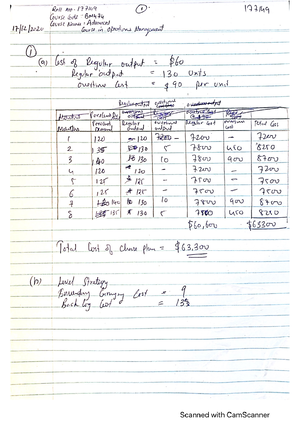 Roll No: 177149
①
177149
Course Code: BMA
Course Name: Advanced
17/12/2020 Course in Operations Management
①
(a) Cost of Regular output = $60
Regular output = 130 units
overtime Cost = $90 per unit
Months Forecast Demand Regular output overtime output Regular Cost overtime Cost Total Cost
1 120 120 - 7200 - 7200
2 135 130 5 7800 450 8250
3 140 130 10 7800 900 8700
4 120 120 - 7200 - 7200
5 125 125 - 7500 - 7500
6 125 125 - 7500 - 7500
7 140 130 10 7800 900 8700
8 135 130 5 7800 450 8250
$60,600 $63300
Total Cost of Chase plan = $63,300
(b) Level Strategy
Carrying Cost = 9
Backlog Cost =
Scanned with CamScanner